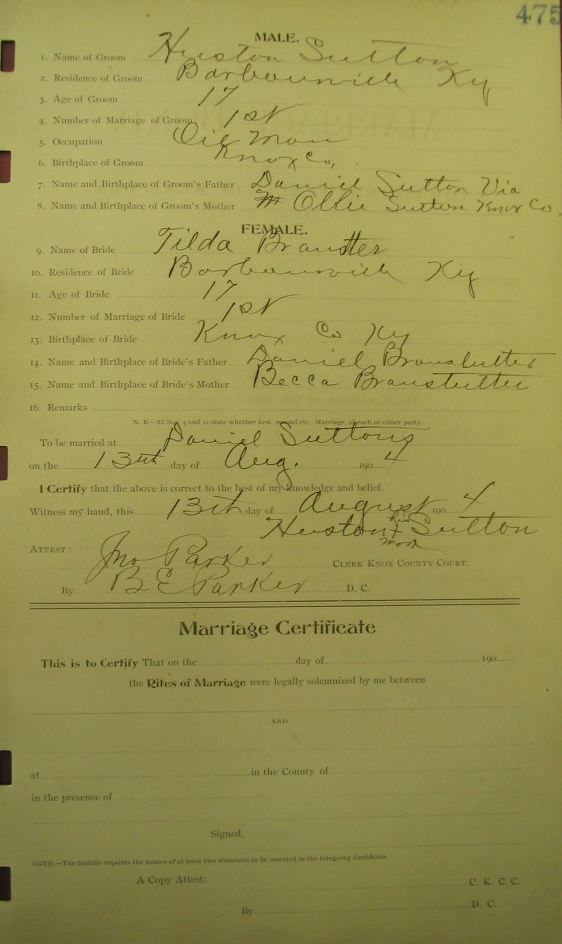 475
MALE.
1. Name of Groom Huston Sutton
2. Residence of Groom Barbourville Ky
3. Age of Groom 17
4. Number of Marriage of Groom 1st
5. Occupation Oil man
6. Birthplace of Groom Knox Co,
7. Name and Birthplace of Groom's Father Daniel Sutton Via
8. Name and Birthplace of Groom's Mother Ollie Sutton Knox Co.
FEMALE.
9. Name of Bride Tilda
10. Residence of Bride Barbourville Ky
11. Age of Bride 17
12. Number of Marriage of Bride 1st
13. Birthplace of Bride Knox Co Ky
14. Name and Birthplace of Bride's Father Daniel
15. Name and Birthplace of Bride's Mother Becca
16. Remarks
N. B.—At Nos. 4 and 12 state whether first, second etc., Marriage, of each or either party.
To be married at Daniel Suttons
on the 13th day of Aug. 190 4
I Certify that the above is correct to the best of my knowledge and belief.
Witness my hand, this 13th day of August 190 4
Huston his x mark Sutton
ATTEST: Jno Parker CLERK KNOX COUNTY COURT.
By B E Parker D. C.
Marriage Certificate
This is to Certify That on the day of 190
the Rites of Marriage were legally solemnized by me between
AND
at in the County of
in the presence of
Signed,
NOTE.—The Statute requires the names of at least two witnesses to be inserted in the foregoing Certificate.
A Copy Attest: C. K. C. C.
By D. C.